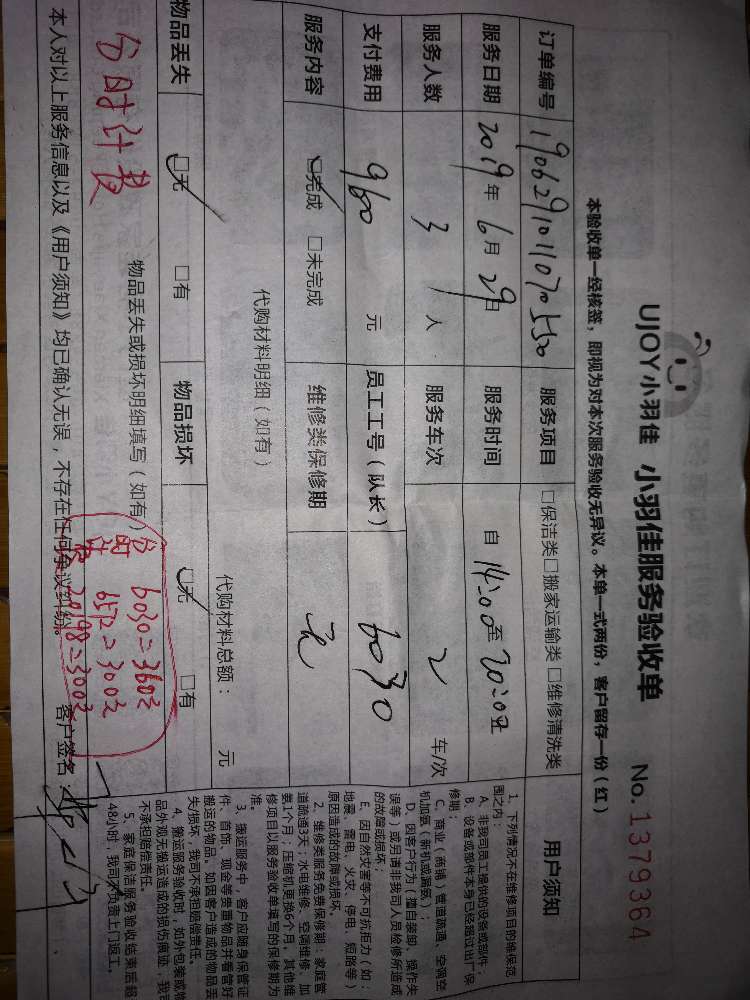 UJOY小羽佳 小羽佳服务验收单 No. 1379364
本验收单一经核签，即视为对本次服务验收无异议。本单一式两份，客户留存一份（红）
订单编号 19062910110705550 服务项目 □保洁类□搬家运输类□维修清洗类
服务日期 2019年6月29日 服务时间 自 14:00 至 20:00
服务人数 3 人 服务车次 2 车/次
支付费用 960 元 员工工号（队长） 6030
服务内容 □完成 □未完成 维修类保修期 无
代购材料明细（如有） 代购材料总额： 元
物品丢失 □无 □有 物品损坏 □无 □有
物品丢失或损坏明细填写（如有）
分时计费
6030=360元
6572=300元
=300元
本人对以上服务信息以及《用户须知》均已确认无误，不存在任何争议纠纷。 客户签名：
用户须知
1、下列情况不在维修项目的维保范围之内：
A、非我司员工提供的设备或部件；
B、设备或部件本身已经超过出厂保修期；
C、商业（商铺）管道疏通、空调空机加氨（新机或漏氨）；
D、因客户行为（擅自装卸、操作失误等）或另请非我司人员检修所造成的故障或损坏；
E、因自然灾害等不可抗拒力（如：地震、雷电、火灾、停电、短路等）原因造成的故障或损坏。
2、维修类服务免费保修期：家庭管道疏通3天；水电维修、空调维修、加氨1个月；压缩机更换6个月，其他维修项目以服务验收单填写的保修期为准。
3、搬运服务中，客户应随身保管证件、首饰、现金等贵重物品并看管好搬运的物品，如因客户造成的物品丢失/损坏，我司不承担赔偿责任。
4、搬运服务验收时，如外包装或物品外观无搬运造成的损伤痕迹，我司不承担赔偿责任。
5、家庭保洁服务验收结束后超48小时，我司不负责上门返工。